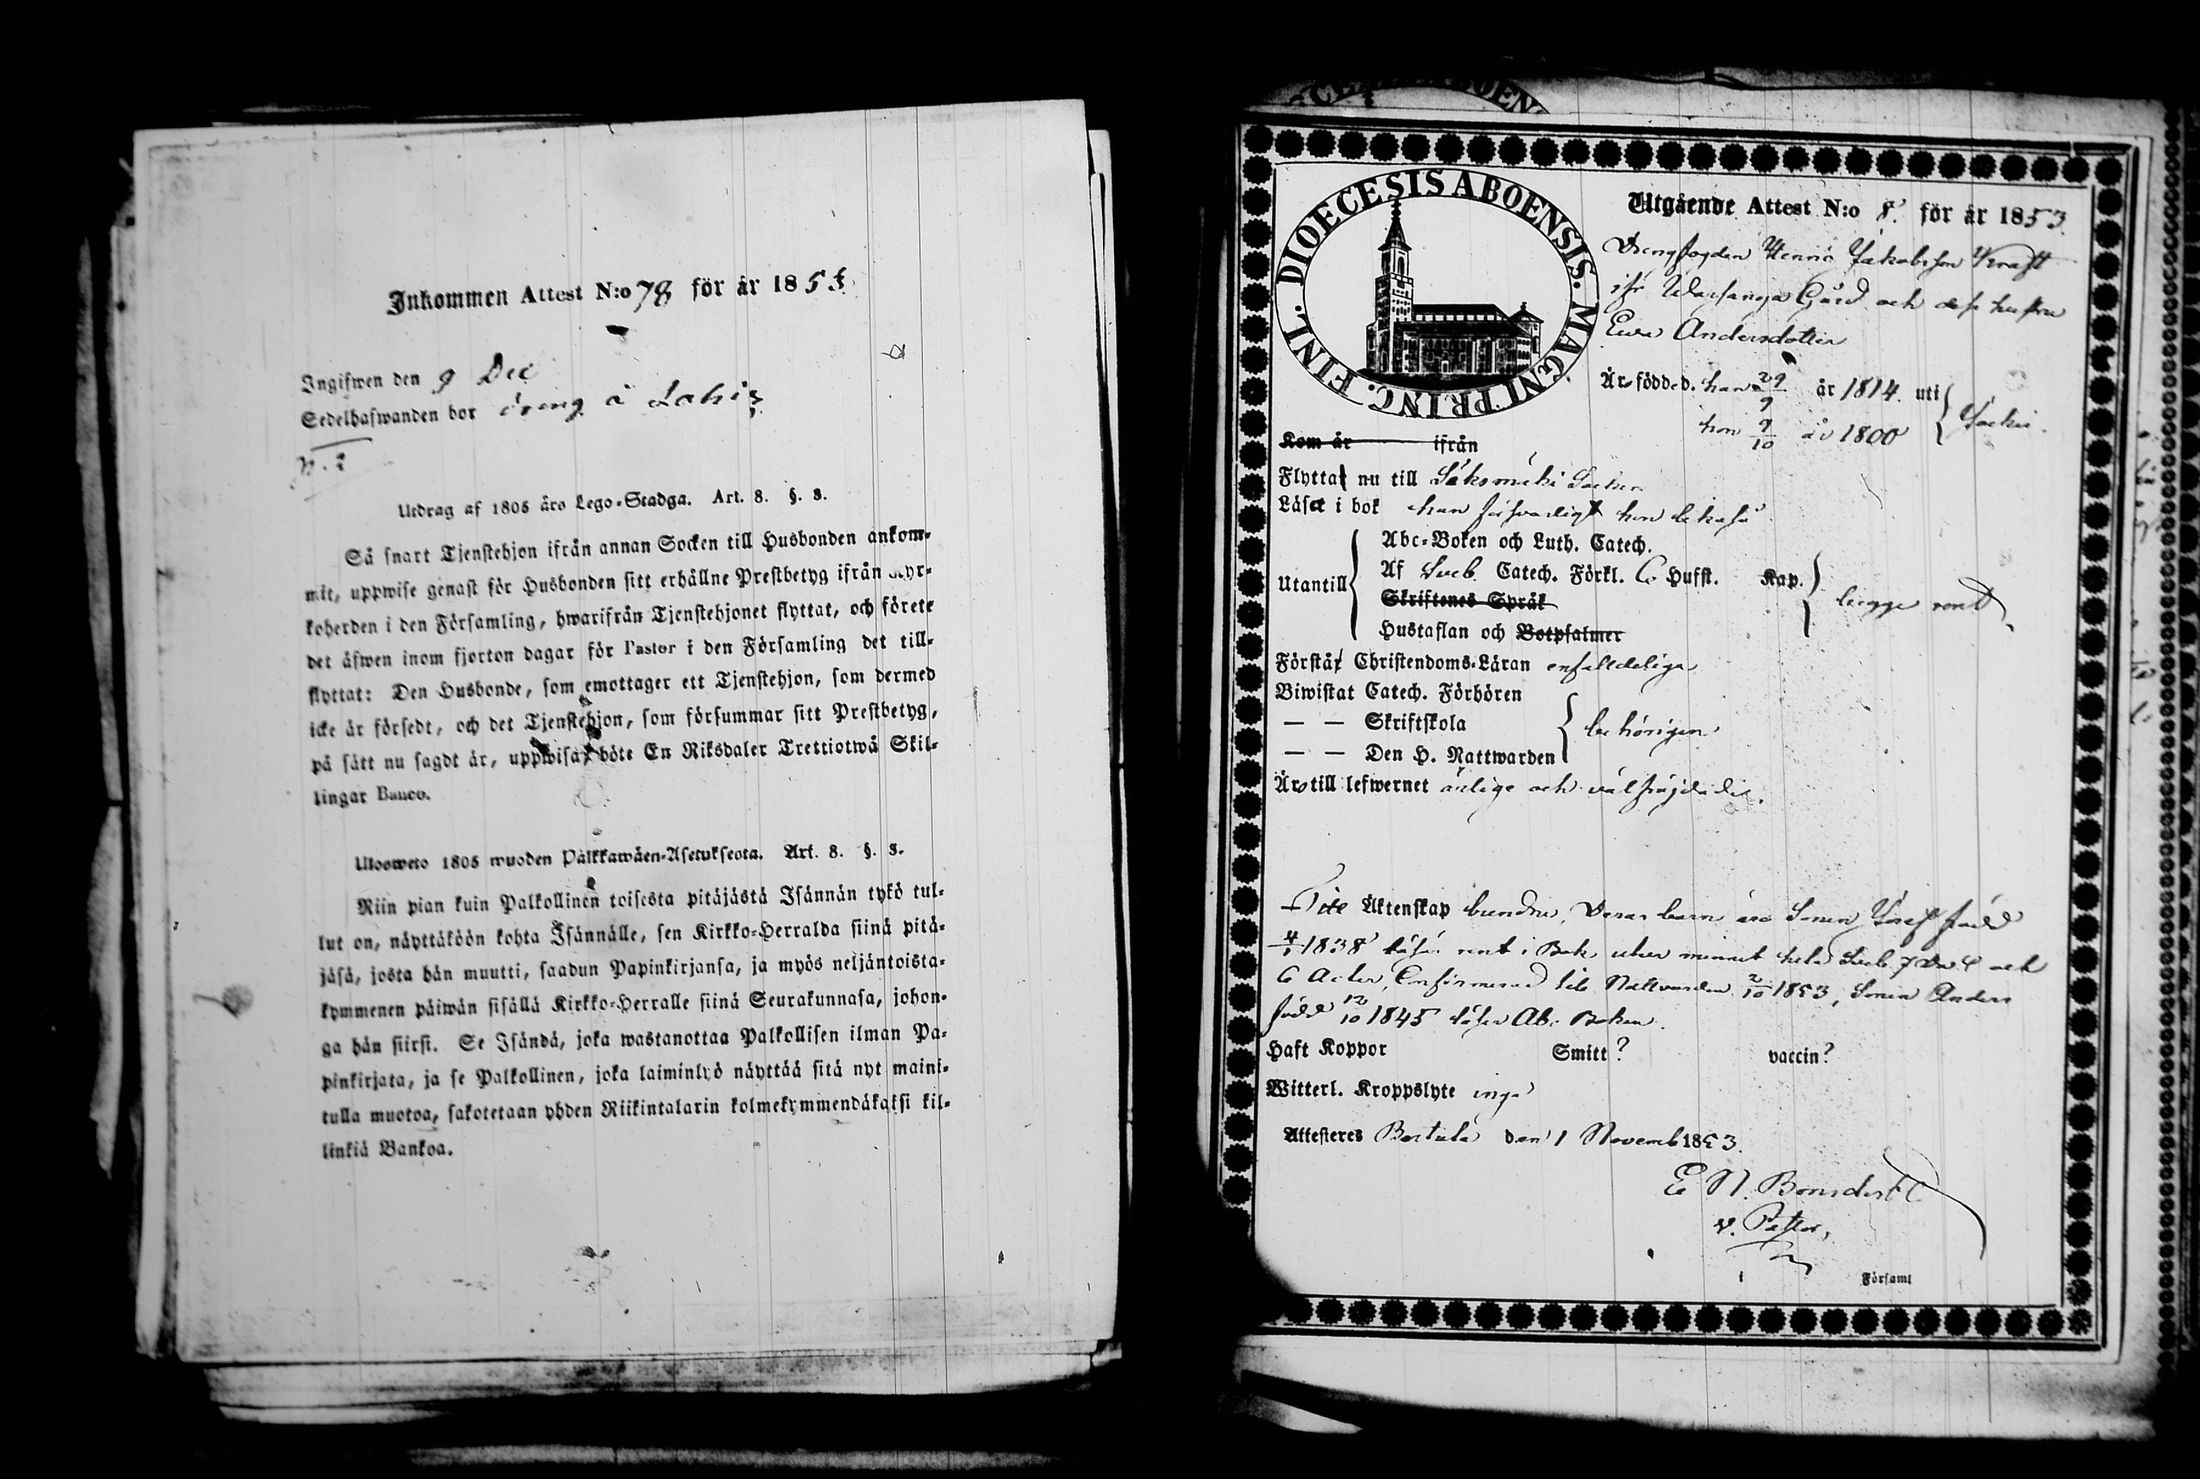 Inkommen Attest N:o 78 för år 1853.
Ingifwen den 9 Dec
Sedelhafwanden bor dräng å Lahis
N. 2
Utdrag af 1805 års Lego-Stadga. Art. 8. §. 3.
Så snart Tjenstehjon ifrån annan Socken till Husbonden ankom-
mit, uppwise genast för Husbonden sitt erhållne Prestbetyg ifrån Kyr-
koherden i den Församling, hwarifrån Tjenstehjonet flyttat, och förete
det äfwen inom fjorton dagar för Pastor i den Församling det till-
flyttat: Den Husbonde, som emottager ett Tjenstehjon, som dermed
icke är försedt, och det Tjenstehjon, som försummar sitt Prestbetyg,
på sätt nu sagdt är, uppwisa, böte En Riksdaler Trettiotwå Skil-
lingar Banco.
Ulosweto 1805 wuoden Palkkawäen-Asetuksesta. Art. 8. §. 3.
Niin pian kuin Palkollinen toisesta pitäjästä Isännän tykö tul-
lut on, näyttäköön kohta Isännälle, sen Kirkko-Herralda siinä pitä-
jäsä, josta hän muutti, saadun Papinkirjansa, ja myös neljäntoista-
kymmenen päiwän sisällä Kirkko-Herralle siinä Seurakunnasa, johon-
ga hän siirsi. Se Isändä, joka wastanottaa Palkollisen ilman Pa-
pinkirjata, ja se Palkollinen, joka laiminlyö näyttää sitä nyt maini-
tulla muotoa, sakotetaan yhden Riikintalarin kolmekymmendäkaksi kil-
linkiä Bankoa.
DIOECESIS ABOENSIS. MAGNI PRINC. FINL.
Utgående Attest N:o 8. för år 1853.
Drengfogden Henric Jakobsson Kraft
ifr. Warsanga Gård och dess hustru
Ewa Andersdotter
Äro födde d. han 29/9 år 1814. uti
hon 9/10 år 1800
Kom år ifrån
Flytta nu till Säksmäki Socken
Läsa i bok han försvarligt hon
Abc-Boken och Luth. Catech.
Utantill Af Sveb. Catech. Förkl. Hufst. Kap.
Skriftenes Språk begge rent
Hustaflan och Botpsalmer
Förstå Christendoms-Läran enfalldeliga
Biwistat Catech. Förhören
— — Skriftskola behörigen
— — Den H. Nattwarden
Äro till lefwernet ärlige och välfrejdade.
Till Äktenskap bundne. Deras barn äro Sonen Josef född
1838 läser rent i Bok utur minnet hela Sveb. och
6 Confirmerad til Nattvarden 2/10 1853, Sonen Anders
född 12/10 1845 läser Abc Boken.
Haft Koppor Smitt? vaccin?
Witterl. Kroppslyte inga
Attesteres Bertula den 1 Novemb 1853.
E N. Bonsdorff
v. Pastor,
i Församl